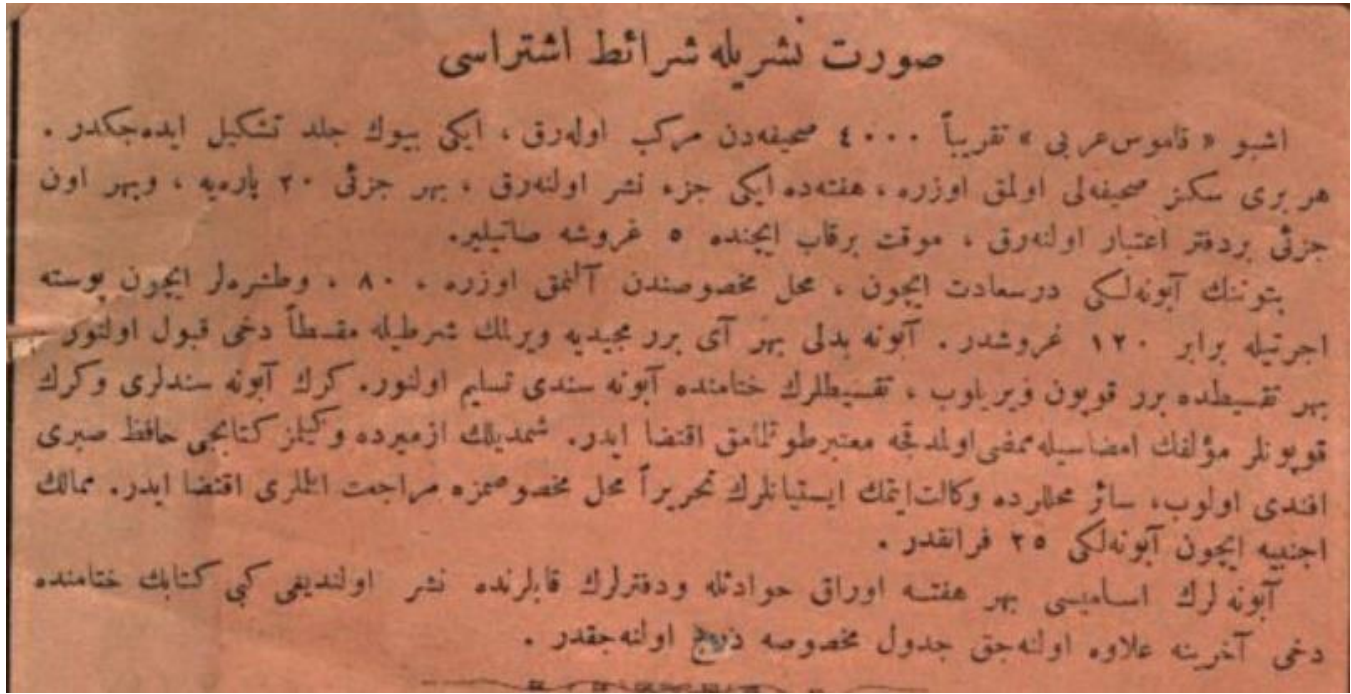 صورت نشریله شرائط اشتراسی
اشبو « قاموس عربی » تقریباً ٤٠٠٠ صحیفه‌دن مرکب اوله‌رق ، ایکی بیوك جلد تشکیل ایده‌جکدر .
هر بری سکز صحیفه‌لی اولمق اوزره ، هفته‌ده ایکی جزء نشر اولنه‌رق ، بهر جزئی ٢٠ پاره‌یه ، وبهر اون
جزئی بردفتر اعتبار اولنه‌رق ، موقت برقاب ایچنده ٥ غروشه صاتیلیر.
بتوننك آبونه‌لکی درسعادت ایچون ، محل مخصوصندن آلنمق اوزره ، ٨٠ ، وطشره‌لر ایچون پوسته
اجرتیله برابر ١٢٠ غروشدر . آبونه بدلی بهر آی برر مجیدیه ویرلمك شرطیله مقسطاً دخی قبول اولنور
بهر تقسیطده برر قوپون ویریلوب ، تقسیطلرك ختامنده آبونه سندی تسلیم اولنور. کرك آبونه سندلری وکرك
قوپونلر مؤلفك امضاسیله ممضی اولمدقجه معتبر طوتلمامق اقتضا ایدر. شمدیلك ازمیرده وکیلمز کتابجی حافظ صبری
افندی اولوب، سائر محللرده وکالت ایتمك ایستیانلرك تحریراً محل مخصوصمزه مراجعت ایتملری اقتضا ایدر. ممالك
اجنبیه ایچون آبونه‌لکی ٢٥ فرانقدر .
آبونه لرك اسامیسی بهر هفته اوراق حوادثله ودفترلرك قابلرنده نشر اولندیغی کبی کتابك ختامنده
دخی آخرینه علاوه اولنه‌جق جدول مخصوصه درج اولنه‌جقدر .